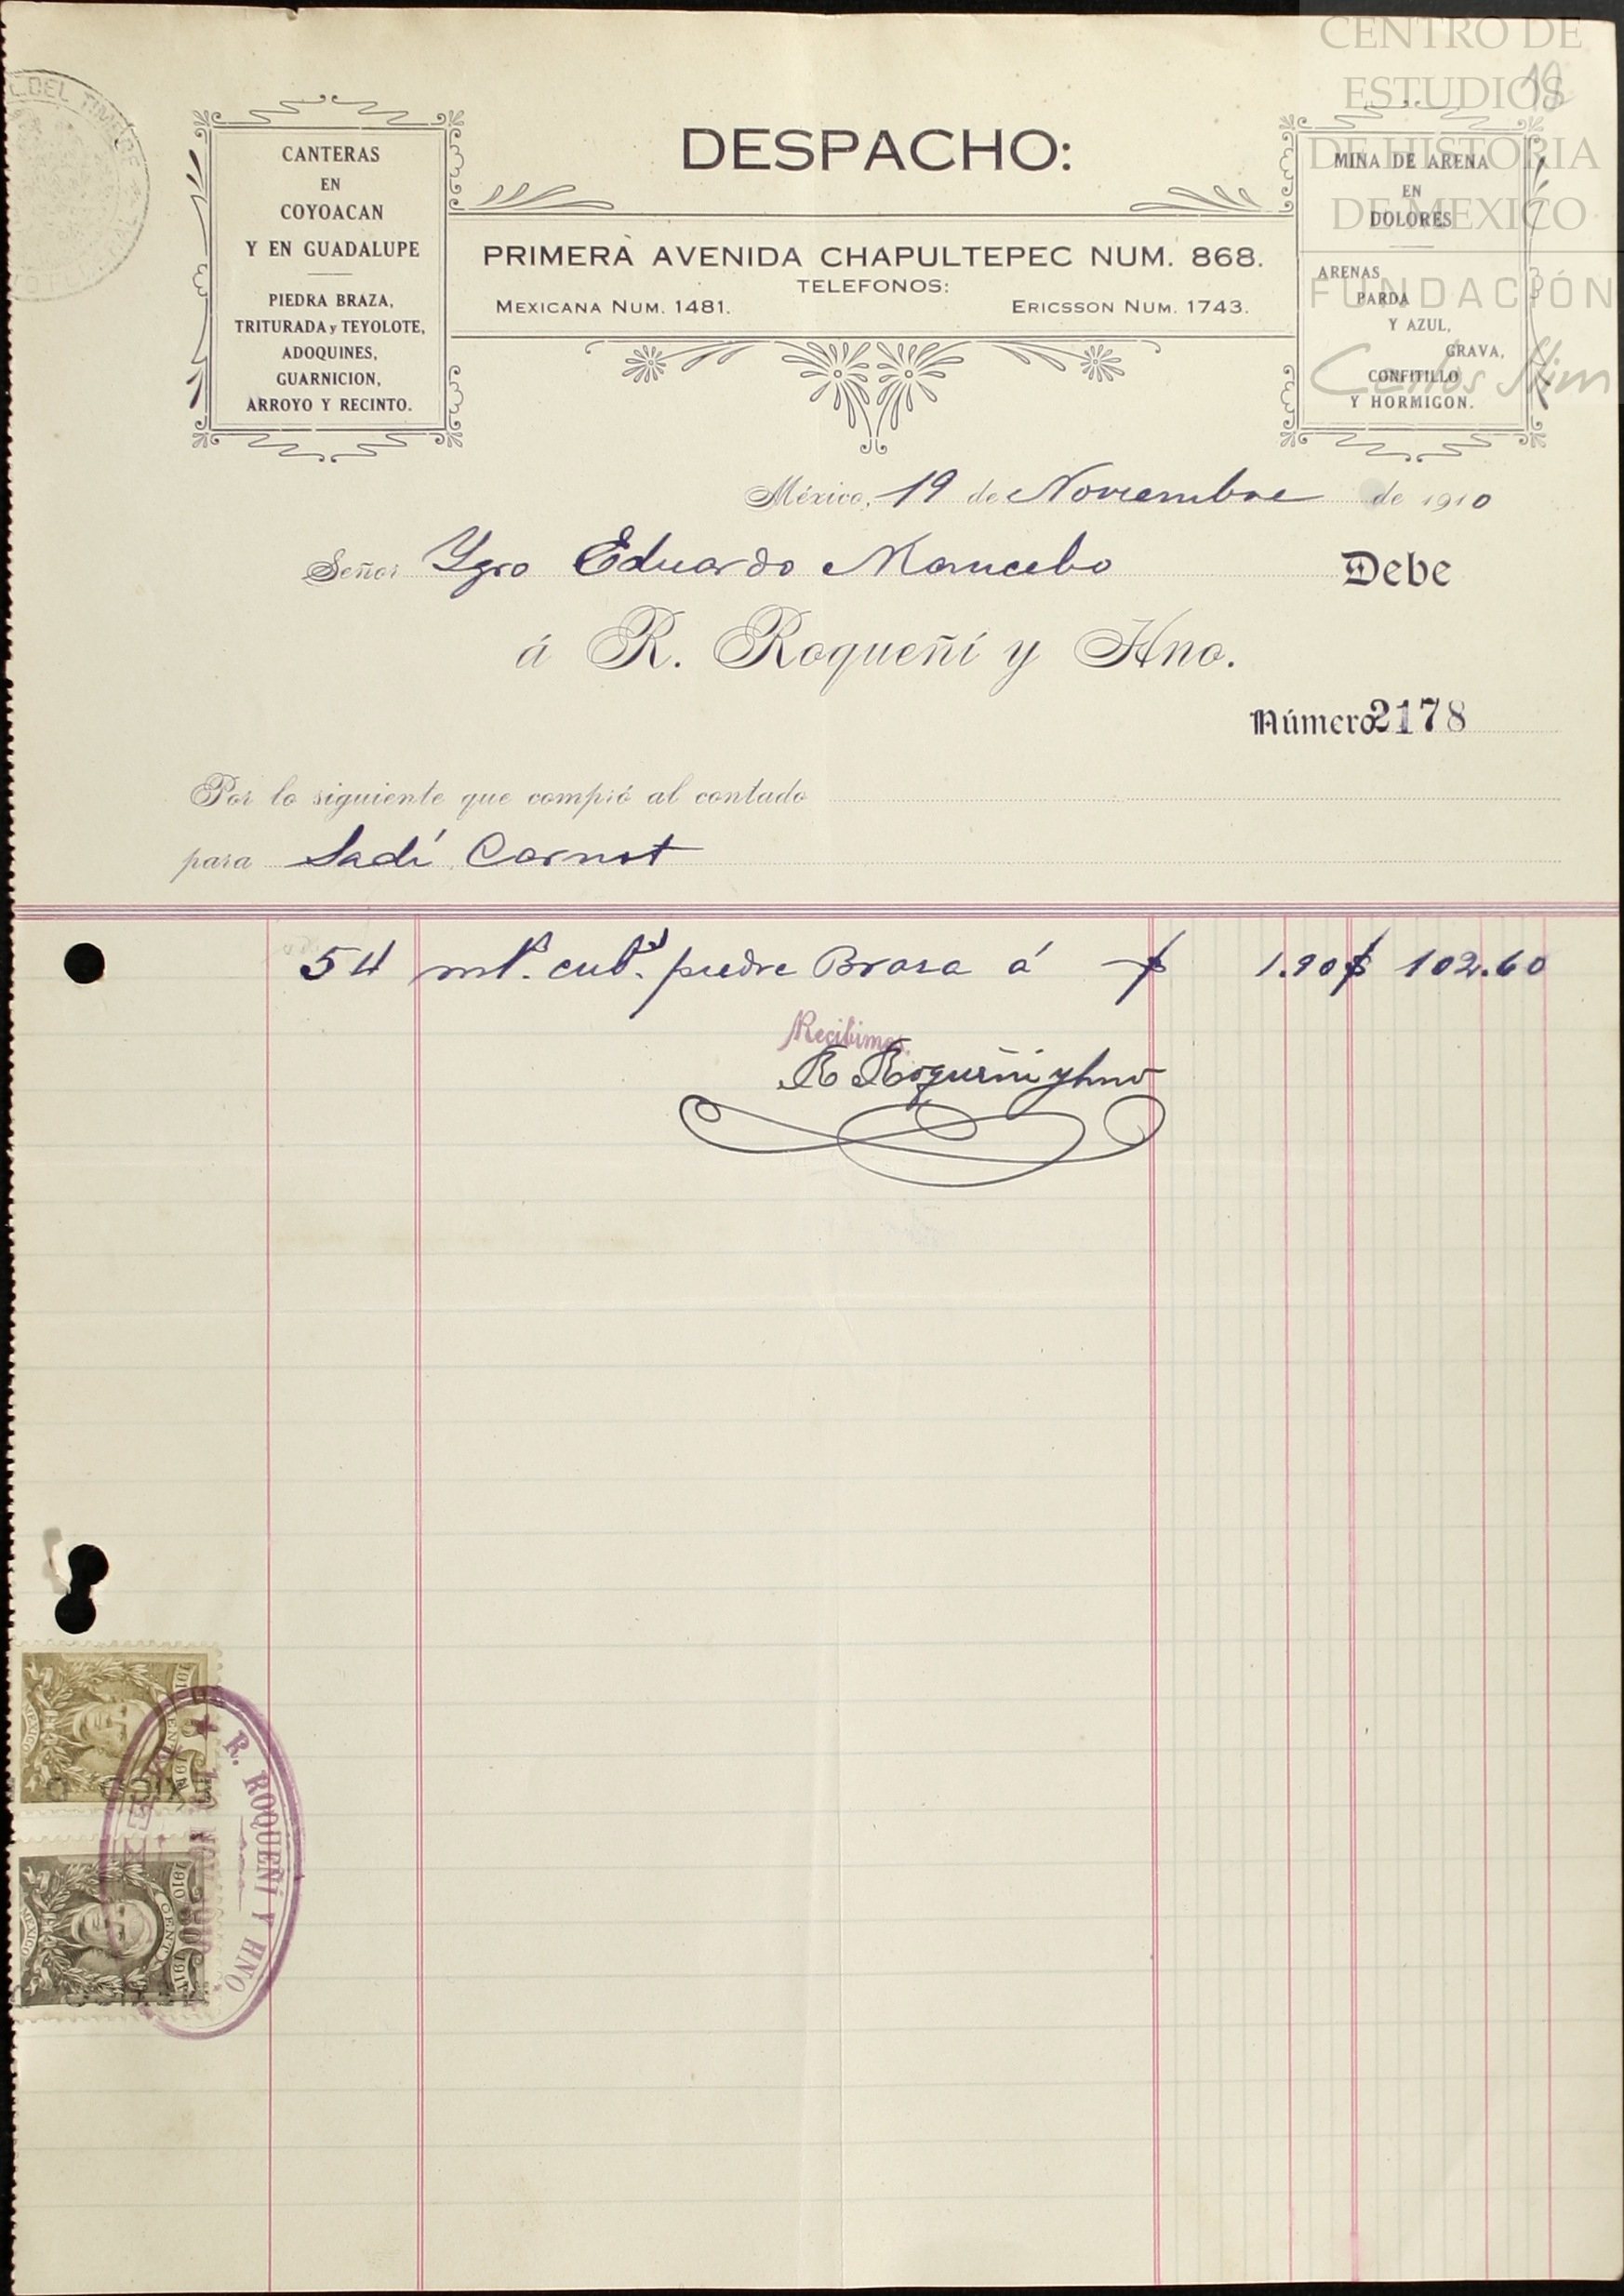 CENTRO DE
ESTUDIOS
DE HISTORIA
DE MEXICO
FUNDACIÓN
Carlos Slim
18
DEL TIMBRE
CANTERAS
EN
COYOACAN
Y EN GUADALUPE
PIEDRA BRAZA,
TRITURADA y TEYOLOTE,
ADOQUINES,
GUARNICION,
ARROYO Y RECINTO.
DESPACHO:
PRIMERA AVENIDA CHAPULTEPEC NUM. 868.
TELEFONOS:
MEXICANA NUM. 1481. ERICSSON NUM. 1743.
MINA DE ARENA
EN
DOLORES
ARENAS
PARDA
Y AZUL,
GRAVA,
CONFITILLO
Y HORMIGON.
México, 19 de Noviembre de 1910
Señor Ygro Eduardo Mancebo Debe
á R. Roqueñí y Hno.
Número 2178
Por lo siguiente que compró al contado
para Sadí Carnot
54 mts. cubs. piedra Brasa á $ 1.90 $ 102.60
Recibimos.
R Roqueñi y hno
R. ROQUEÑI Y HNO.
1910 CENT 1911
MEXICO
1910 CENT 1911
MEXICO